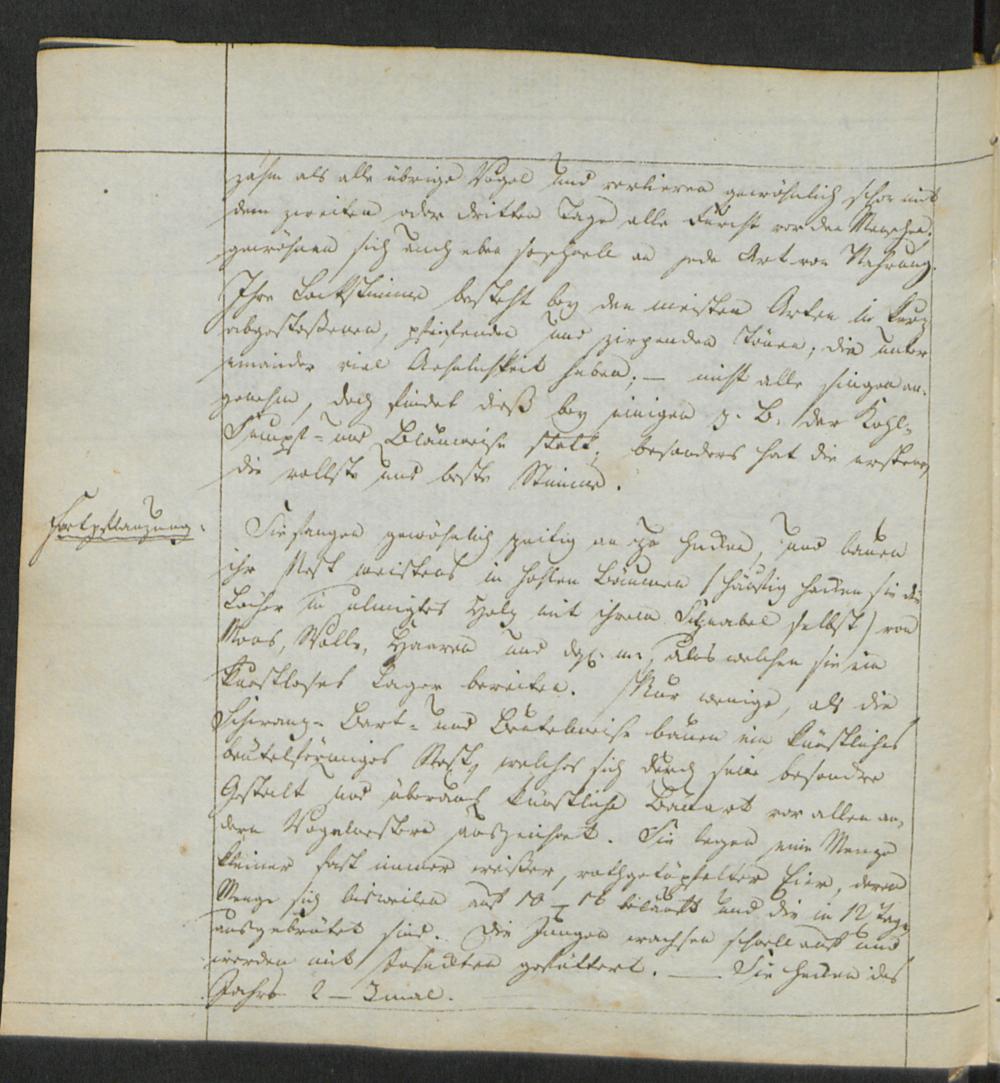 zahm als alle übrige Vögel und verlieren gewöhnlich schon mit
dem zweiten oder dritten Tage alle Furcht vor den Menschen.
gewöhnen sich auch eben so schnell an jede Art von Nahrung.
Ihre Lockstimme besteht bey den meisten Arten in kurz
abgestoßenen, pfeifenden und zirpenden Tönen; die unter
einander viel Aehnlichkeit haben; — nicht alle singen an-
genehm, doch findet dieß bey einigen z. B. der Kohl-
Sumpf- und Blaumeise statt, besonders hat die erstere,
die vollste und beste Stimme.
Fortpflanzung.
Sie fangen gewöhnlich zeitig an zu hecken, und bauen
ihr Nest meistens in hohlen Bäumen (häufig hacken sie die
Löcher in ulmigtes Holz mit ihrem Schnabel selbst) von
Moos, Wolle, Haaren und dgl. m. aus welchen sie ein
kunstloses Lager bereiten. Nur wenige, als die
Schwanz- Bart- und Beutelmeise bauen ein künstliches
beutelförmiges Nest, welches sich durch seine besondre
Gestalt und überaus künstliche Bauart vor allen an-
dern Vogelnestern auszeichnet. Sie legen eine Menge
kleiner fast immer weißer, rothgetüpfelter Eier, deren
Menge sich bisweilen auf 10 – 16 beläuft und die in 12 Tagen
ausgebrütet sind. Die Jungen wachsen schnell auf und
werden mit Insecten gefüttert. — Sie hecken des
Jahrs 2 – 3 mal.